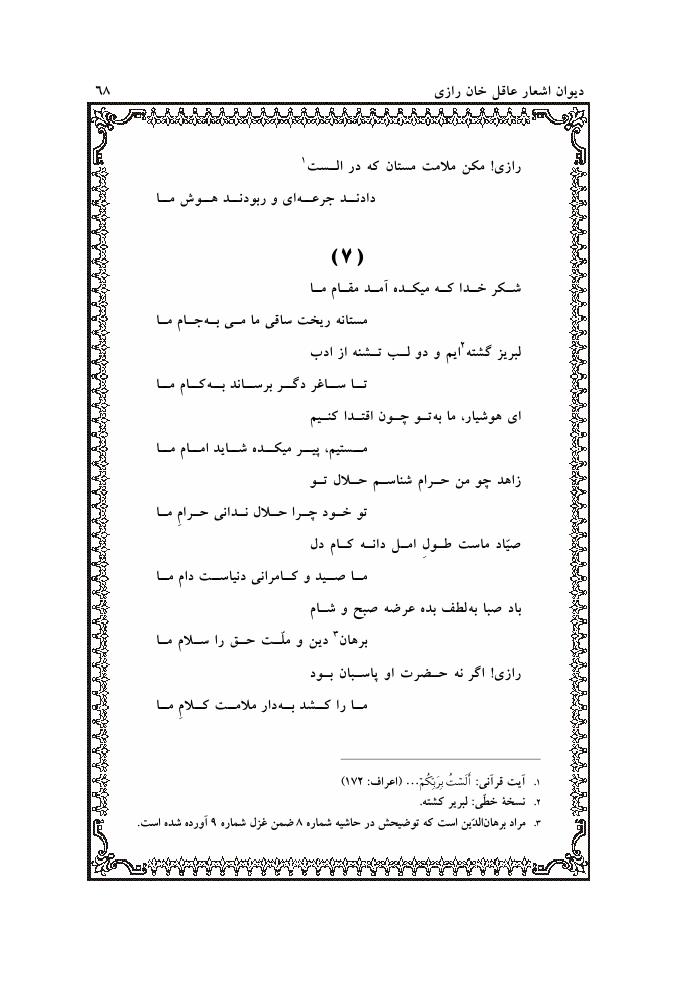 دیوان اشعار عاقل خان رازی ۶۸
رازی! مکن ملامت مستان که در الـست۱
دادنـد جرعـه‌ای و ربودنـد هـوش مـا
(۷)
شـکر خـدا کـه میکـده آمـد مقـام مـا
مستانه ریخت ساقی ما مـی بـه‌جـام مـا
لبریز گشته۲ایم و دو لـب تـشنه از ادب
تـا سـاغر دگـر برسـاند بـه‌کـام مـا
ای هوشیار، ما به‌تـو چـون اقتـدا کنـیم
مـستیم، پیـر میکـده شـاید امـام مـا
زاهد چو من حـرام شناسـم حلال تـو
تو خـود چـرا حـلال ندانی حـرامِ مـا
صیّاد ماست طـولِ امـل دانـه کـام دل
مـا صـید و کـامرانی دنیاسـت دام مـا
باد صبا به‌لطف بده عرضه صبح و شـام
برهان۳ دین و ملّـت حـق را سـلام مـا
رازی! اگر نه حـضرت او پاسـبان بـود
مـا را کـشد بـه‌دار ملامـت کـلامِ مـا
۱. آیت قرآنی: أَلَسْتُ بِرَبِّكُمْ... (اعراف: ۱۷۲)
۲. نسخهٔ خطّی: لبریر کشته.
۳. مراد برهان‌الدّین است که توضیحش در حاشیه شماره ۸ ضمن غزل شماره ۹ آورده شده است.